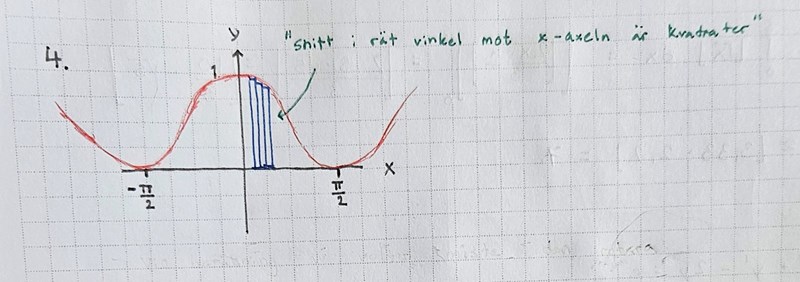 y
"Snitt i rät vinkel mot x-axeln är kvadrater"
4.
1
x
-π/2
π/2